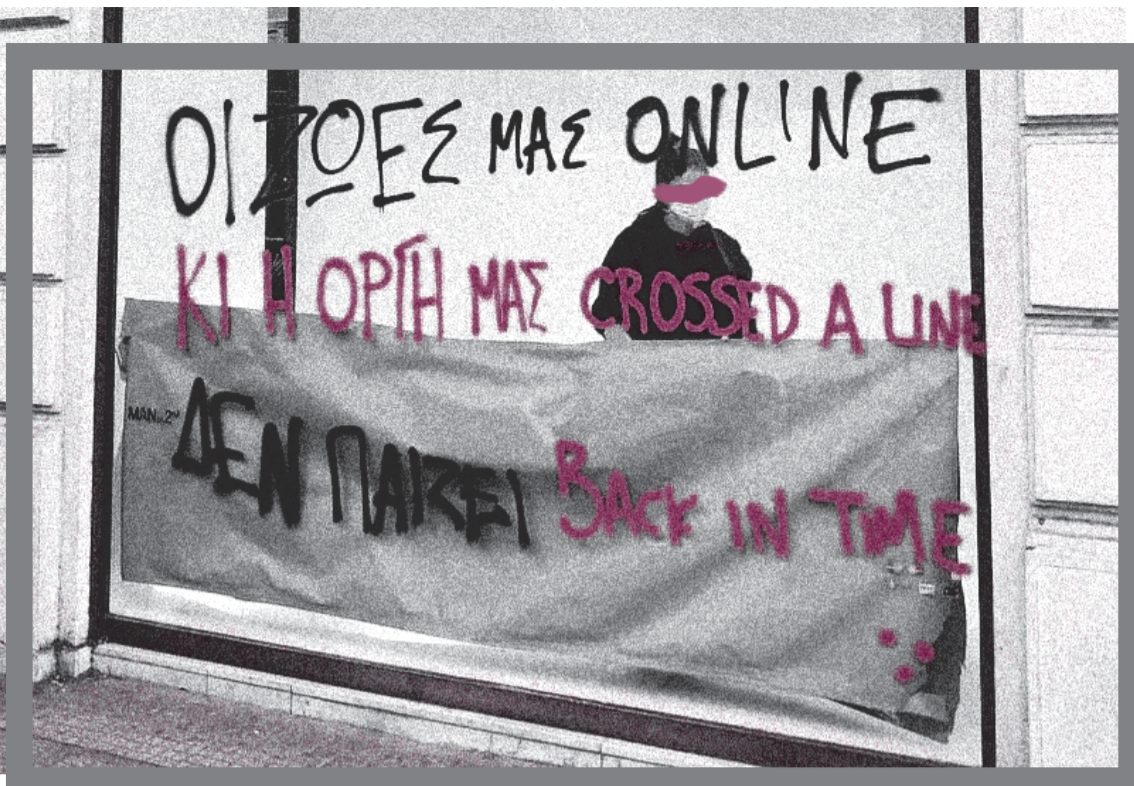 ΟΙ ΖΩΕΣ ΜΑΣ ONLINE
ΚΙ Η ΟΡΓΗ ΜΑΣ CROSSED A LINE
ΔΕΝ ΠΑΙΖΕΙ BACK IN TIME